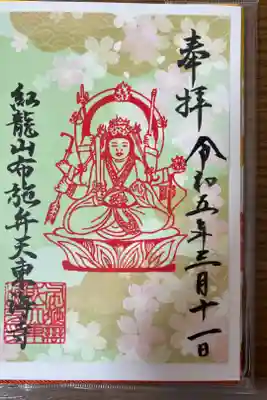 奉拝
令和五年三月十一日
紅龍山布施弁天東海寺